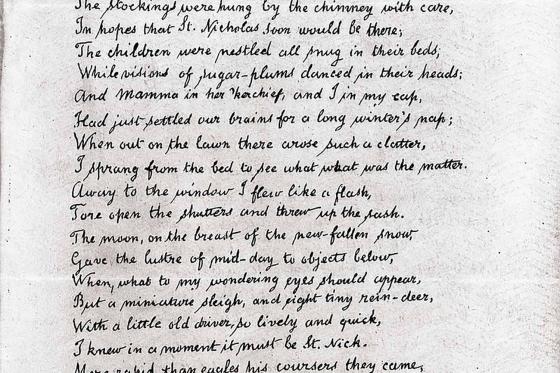 The stockings were hung by the chimney with care,
In hopes that St. Nicholas soon would be there;
The children were nestled all snug in their beds;
While visions of sugar-plums danced in their heads;
And Mamma in her 'kerchief, and I in my cap,
Had just settled our brains for a long winter's nap;
When out on the lawn there arose such a clatter,
I sprang from the bed to see what what was the matter.
Away to the window I flew like a flash,
Tore open the shutters and threw up the sash.
The moon, on the breast of the new-fallen snow,
Gave the lustre of mid-day to objects below,
When, what to my wondering eyes should appear,
But a miniature sleigh, and eight tiny rein-deer,
With a little old driver, so lively and quick,
I knew in a moment it must be St. Nick.
More rapid than eagles his coursers they came,